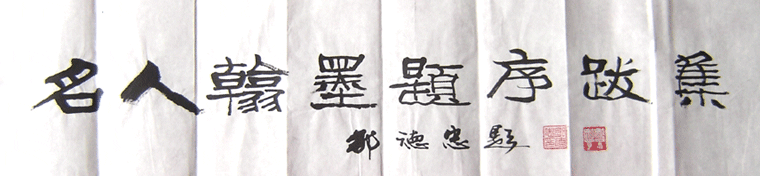 名人翰墨題序跋集
德忠題